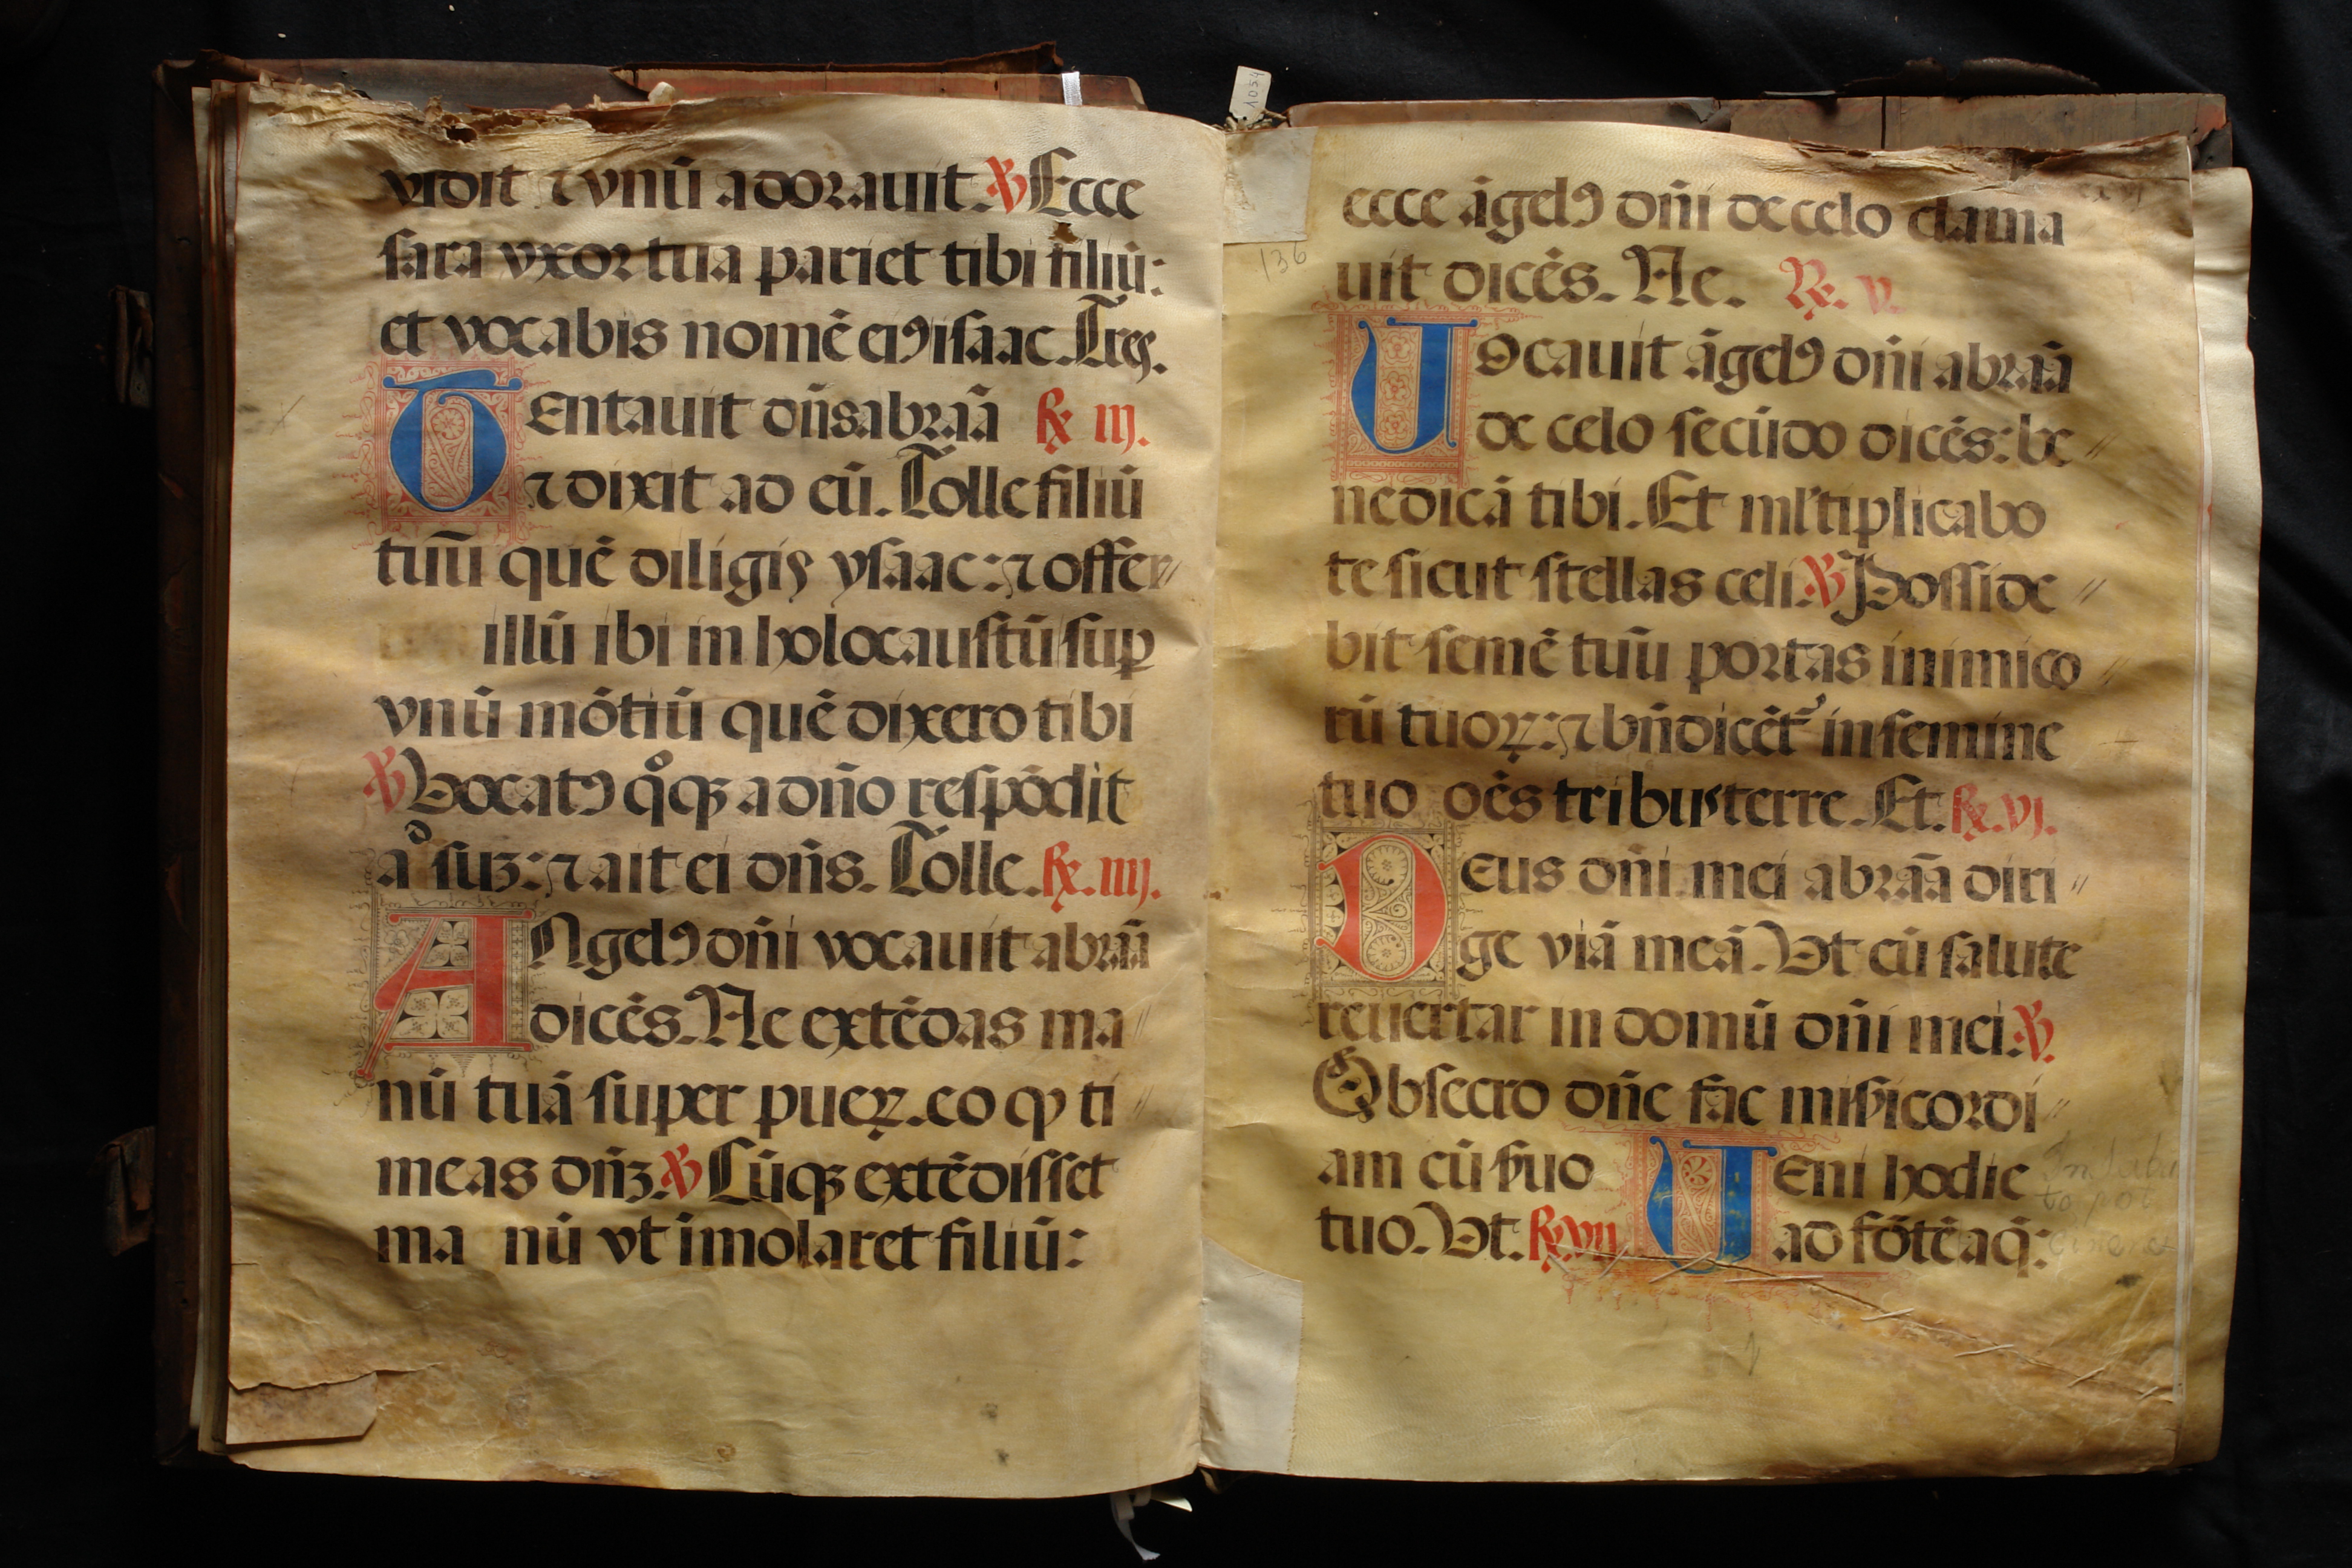 vidit ⁊ vnū adorauit. ℣ Ecce
sara vxor tua pariet tibi filiū:
et vocabis nomē eiꝰ isaac. Tres.
TEntauit dn̄s abraā ℟ iij.
⁊ dixit ad eū. Tolle filiū
tuū quē diligis ysaac: ⁊ offer
illū ibi in holocaustū sup̱
vnū mōtiū quē dixero tibi
℣ Vocatꝰ qͦqꝫ a dn̄o respōdit
aͩ suꝫ: ⁊ ait ei dn̄s. Tolle. ℟. iiij.
ANgelꝰ dn̄i vocauit abraā
dicēs. Ne extēdas ma
nū tuā super pueꝝ. eo ꝙ ti
meas dn̄ꝫ. ℣ Cūqꝫ extēdisset
ma nū vt imolaret filiū:
1054
136
ecce āgelꝰ dn̄i de celo clama
uit dicēs. Ne. ℟. v.
Uocauit āgelꝰ dn̄i abraā
de celo secūdo dicēs: be
nedicā tibi. Et ml'tiplicabo
te sicut stellas celi. ℣ Posside
bit semē tuū portas inimico
rū tuoꝝ: ⁊ bn̄dicēt᷑ in semine
tuo oēs tribus terre. Et. ℟. vj.
DEus dn̄i mei abraā diri
ge viā meā. Vt cū salute
reuertar in domū dn̄i mei. ℣.
Obsecro dn̄e fac mis̄icordi
am cū s̄uo UEni hodie
tuo. Vt. ℟. vii ad fōtē aq̄: